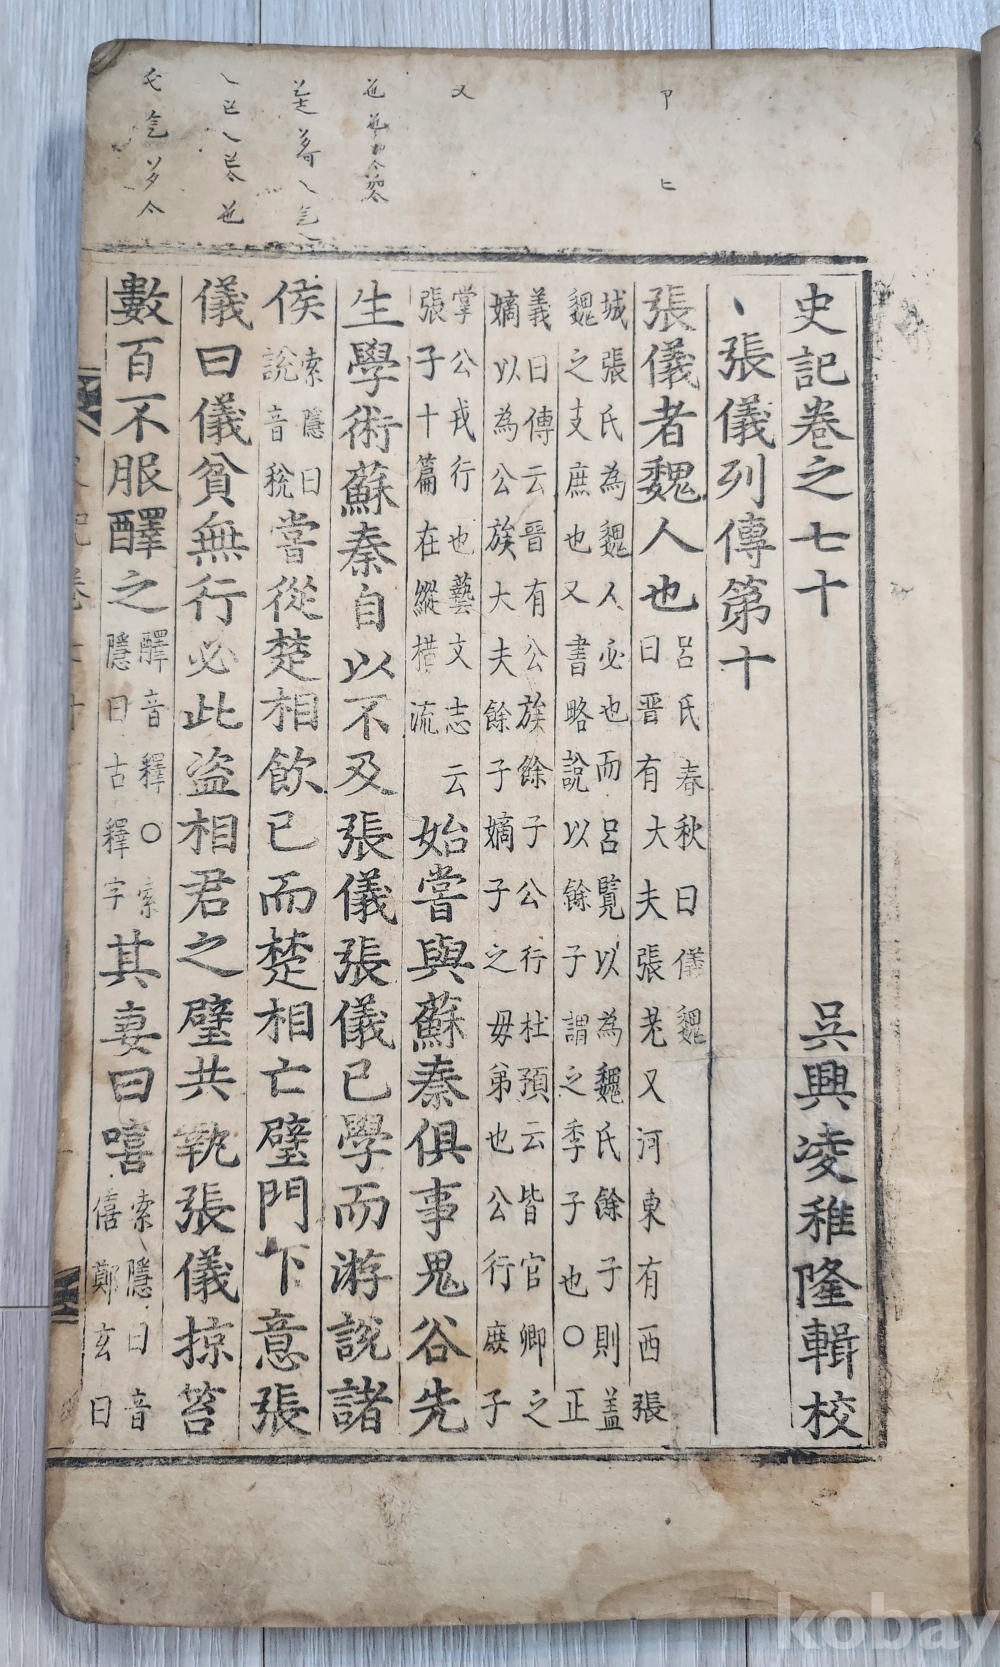 史記卷之七十 吳興凌稚隆輯校
張儀列傳第十
張儀者魏人也
呂氏春秋曰儀魏
曰晋有大夫張老又河東有西張
城張氏為魏人必也而呂覧以為魏氏餘子則盖
魏之支庶也又書略說以餘子謂之季子也○正
義曰傳云晋有公族餘子公行杜預云皆官卿之
嫡以為公族大夫餘子嫡子之毋弟也公行庶子
掌公戎行也藝文志云
張子十篇在縱橫流
始嘗與蘇秦俱事鬼谷先
生學術蘇秦自以不及張儀張儀已學而游說諸
侯
索隱曰
說音稅
嘗從楚相飲已而楚相亡璧門下意張
儀曰儀貧無行必此盗相君之璧共執張儀掠笞
數百不服醳之
醳音釋○索
隱曰古釋字
其妻曰嘻
索隱曰音
僖鄭玄曰
kobay